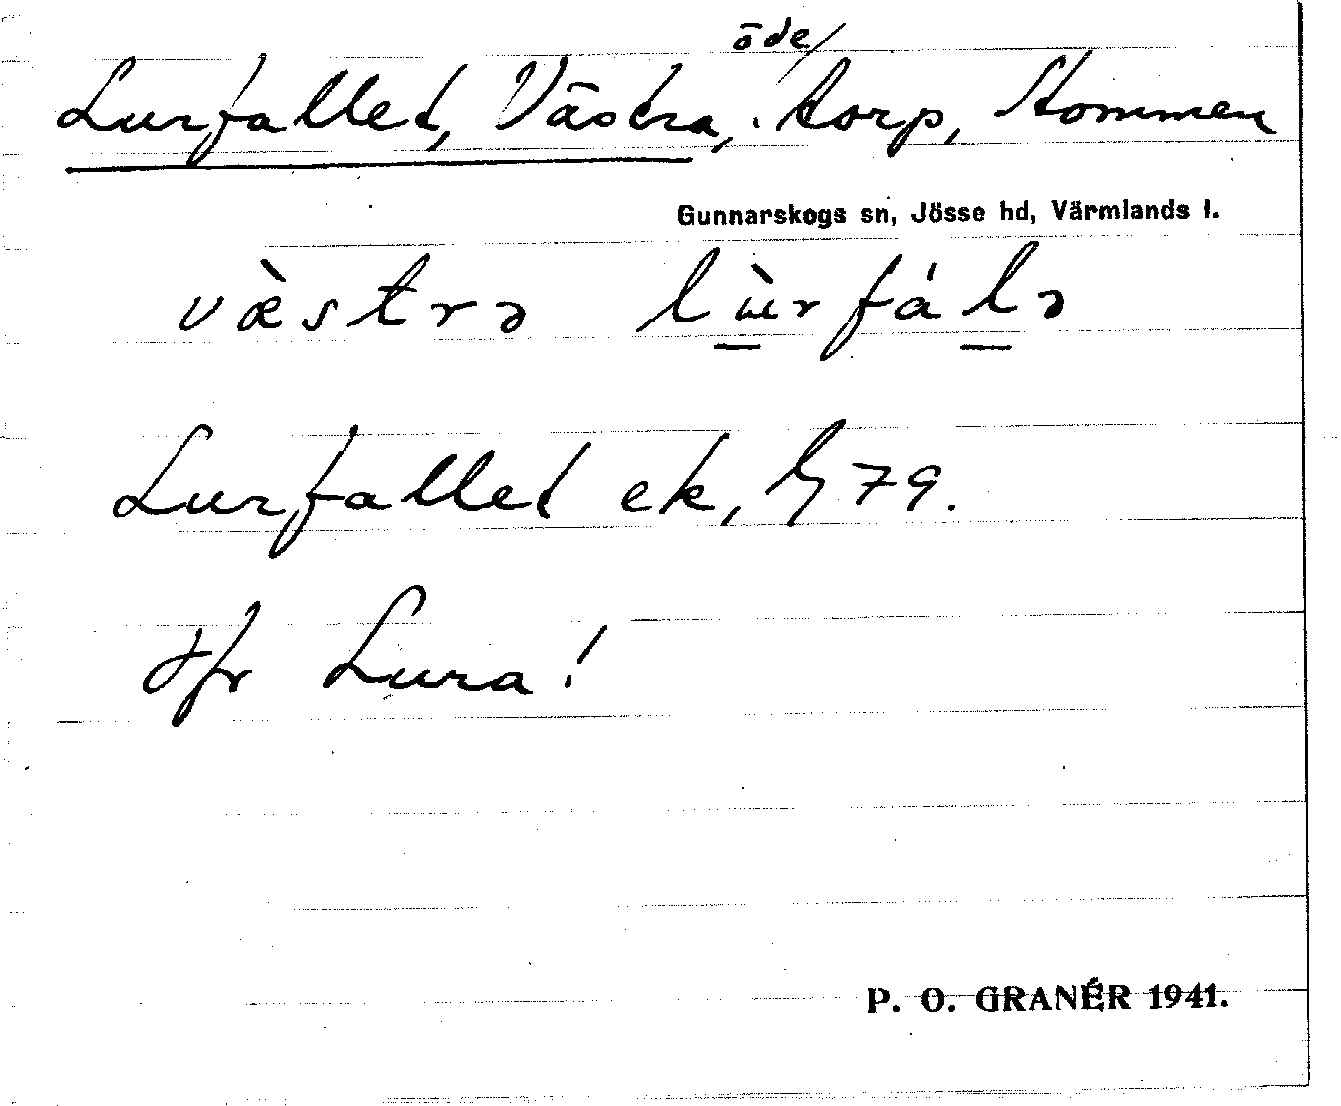 Lurfallet, Västra, öde/torp, Stommen
Gunnarskogs sn, Jösse hd, Värmlands l.
væ̀strə lɯ̀rfálə
Lurfallet ek, 79.
Jfr Lura!
P. O. GRANÉR 1941.